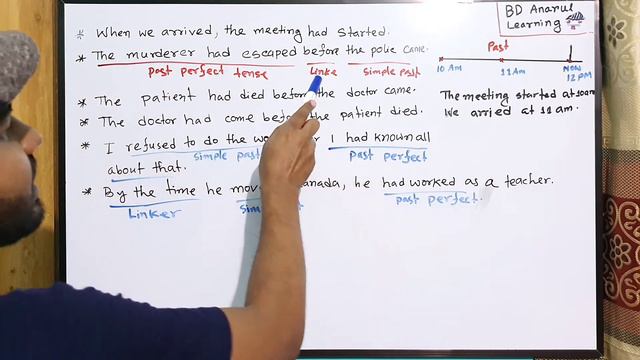 * When we arrived, the meeting had started.
* The murderer had escaped before the police came.
past perfect tense Linke simple past
* The patient had died before the doctor came.
* The doctor had come before the patient died.
* I refused to do the I had known all
simple past past perfect
about that.
* By the time he Canada, he had worked as a teacher.
Linker past perfect.
BD Anarul
Learning
Past
10 Am 11 Am Now
12 PM
The meeting started at 10am
We arried at 11 am.